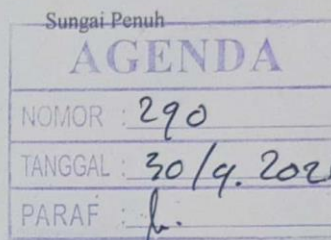 Sungai Penuh
AGENDA
NOMOR : 290
TANGGAL : 30/9.
PARAF :